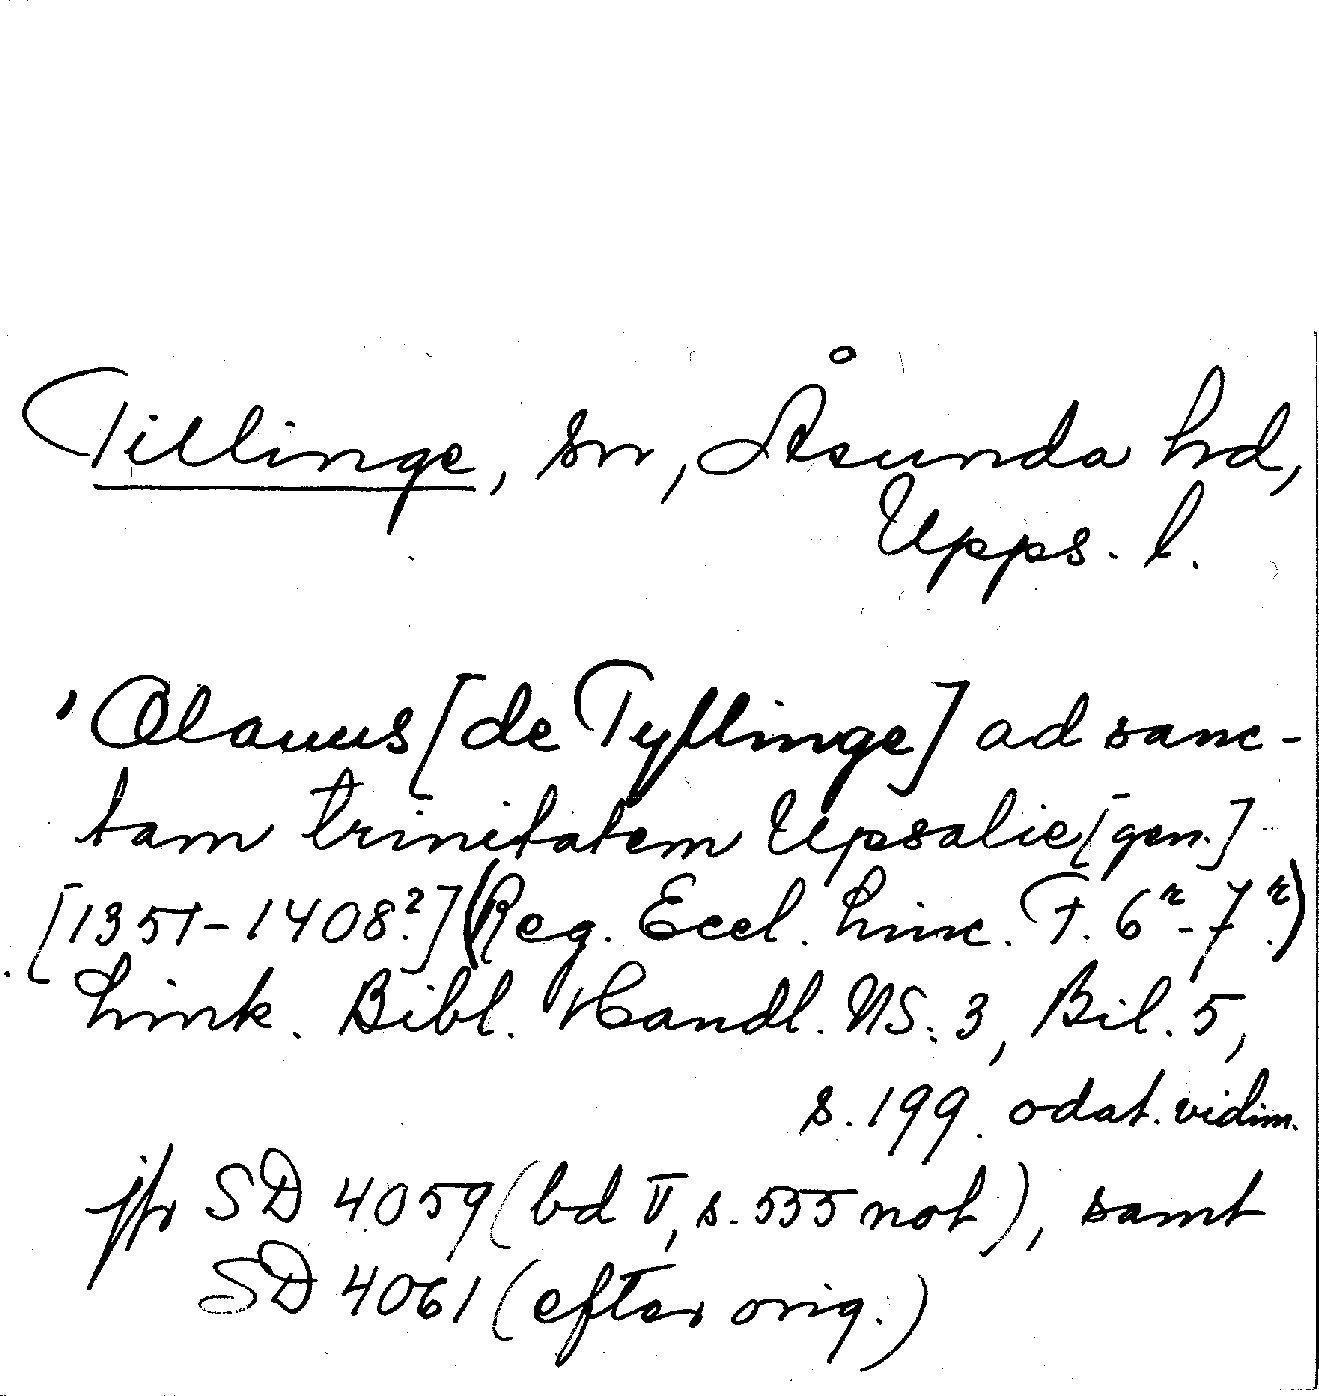 Tillinge, sn, Åsunda hd,
Upps. l.
'Olauus [de Tyllinge] ad sanc-
tam trinitatem Upsalie [gen.]
[1351-1408?] (Reg. Eccl. Linc. F. 6r-7r.)
Link. Bibl. Handl. NS. 3, Bil. 5,
s. 199. odat. vidim.
jfr SD 4059 (bd V, s. 555 not), samt
SD 4061 (efter orig.)